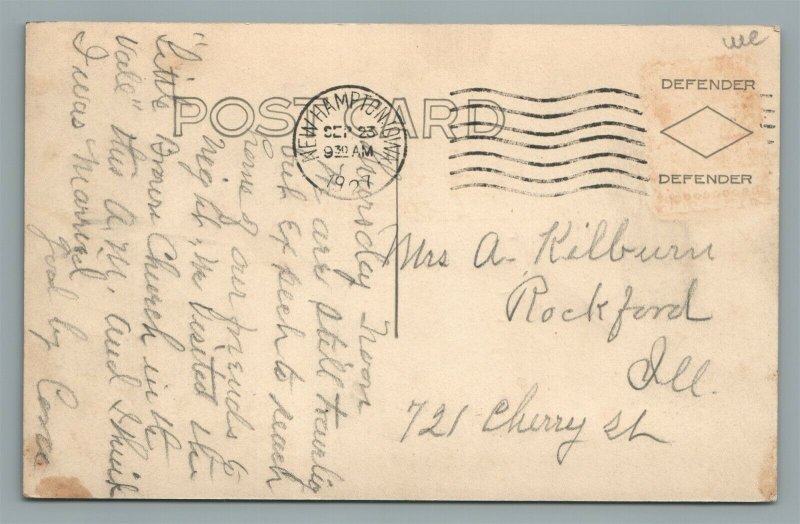 we
POST CARD
NEW HAMPTON IOWA
SEP 23
9 30 AM
1927
DEFENDER
DEFENDER
Mrs A. Kilburn
Rockford
Ill.
721 Cherry St
Noon
We are still
but expect to reach
some of our friends to
night, We Visited the
"Little Brown Church in the
Vale" this A.M. and I think
I was Married
good by